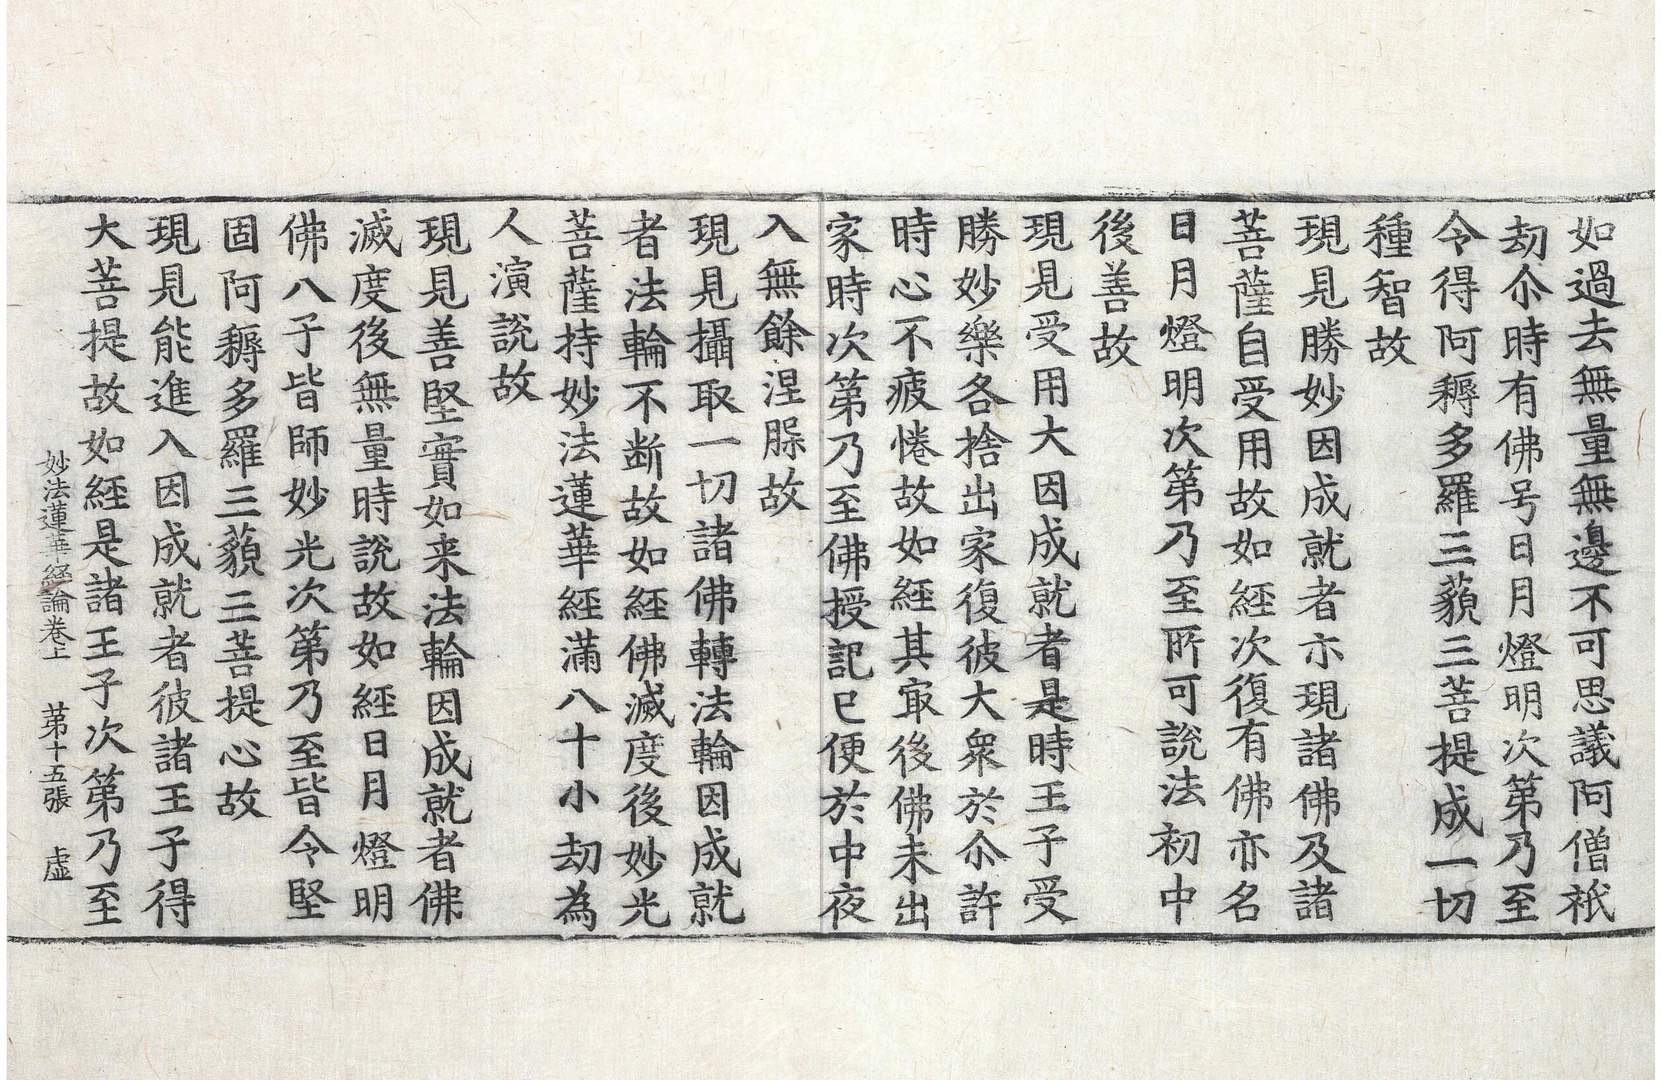 如過去無量無邊不可思議阿僧祇
劫尒時有佛号日月燈明次第乃至
令得阿耨多羅三藐三菩提成一切
種智故
現見勝妙因成就者示現諸佛及諸
菩薩自受用故如經次復有佛亦名
日月燈明次第乃至所可說法初中
後善故
現見受用大因成就者是時王子受
勝妙樂各捨出家復彼大衆於尒許
時心不疲惓故如經其㝡後佛未出
家時次第乃至佛授記已便於中夜
入無餘涅槃故
現見攝取一切諸佛轉法輪因成就
者法輪不断故如經佛滅度後妙光
菩薩持妙法蓮華經滿八十小劫為
人演說故
現見善堅實如来法輪因成就者佛
滅度後無量時說故如經日月燈明
佛八子皆師妙光次第乃至皆令堅
固阿耨多羅三藐三菩提心故
現見能進入因成就者彼諸王子得
大菩提故如經是諸王子次第乃至
妙法蓮華経論卷上 苐十五張 虛